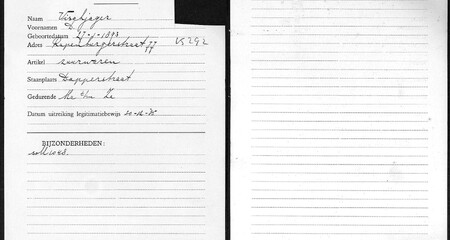 Naam Vischjager
Voornamen D.
Geboortedatum 27-1-1893
Adres Rapenburgerstraat 77 V 292
Artikel zuurwaren
Staanplaats Dapperstraat
Gedurende Ma t/m Za
Datum uitreiking legitimatiebewijs 20-12-'35
BIJZONDERHEDEN: